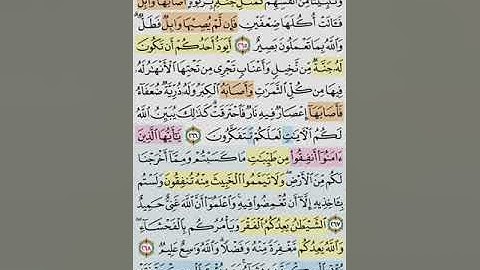 وَتَثْبِيتًا مِّنْ أَنفُسِهِمْ كَمَثَلِ جَنَّةٍ بِرَبْوَةٍ أَصَابَهَا وَابِلٌ
فَـَٔاتَتْ أُكُلَهَا ضِعْفَيْنِ فَإِن لَّمْ يُصِبْهَا وَابِلٌ فَطَلٌّ ۗ
وَٱللَّهُ بِمَا تَعْمَلُونَ بَصِيرٌ ٢٦٥ أَيَوَدُّ أَحَدُكُمْ أَن تَكُونَ
لَهُۥ جَنَّةٌ مِّن نَّخِيلٍ وَأَعْنَابٍ تَجْرِى مِن تَحْتِهَا ٱلْأَنْهَٰرُ لَهُۥ
فِيهَا مِن كُلِّ ٱلثَّمَرَٰتِ وَأَصَابَهُ ٱلْكِبَرُ وَلَهُۥ ذُرِّيَّةٌ ضُعَفَآءُ
فَأَصَابَهَآ إِعْصَارٌ فِيهِ نَارٌ فَٱحْتَرَقَتْ ۗ كَذَٰلِكَ يُبَيِّنُ ٱللَّهُ
لَكُمُ ٱلْـَٔايَٰتِ لَعَلَّكُمْ تَتَفَكَّرُونَ ٢٦٦ يَٰٓأَيُّهَا ٱلَّذِينَ
ءَامَنُوٓا۟ أَنفِقُوا۟ مِن طَيِّبَٰتِ مَا كَسَبْتُمْ وَمِمَّآ أَخْرَجْنَا
لَكُم مِّنَ ٱلْأَرْضِ ۖ وَلَا تَيَمَّمُوا۟ ٱلْخَبِيثَ مِنْهُ تُنفِقُونَ وَلَسْتُم
بِـَٔاخِذِيهِ إِلَّآ أَن تُغْمِضُوا۟ فِيهِ ۚ وَٱعْلَمُوٓا۟ أَنَّ ٱللَّهَ غَنِىٌّ حَمِيدٌ
٢٦٧ ٱلشَّيْطَٰنُ يَعِدُكُمُ ٱلْفَقْرَ وَيَأْمُرُكُم بِٱلْفَحْشَآءِ ۖ
وَٱللَّهُ يَعِدُكُم مَّغْفِرَةً مِّنْهُ وَفَضْلًا ۗ وَٱللَّهُ وَٰسِعٌ عَلِيمٌ ٢٦٨